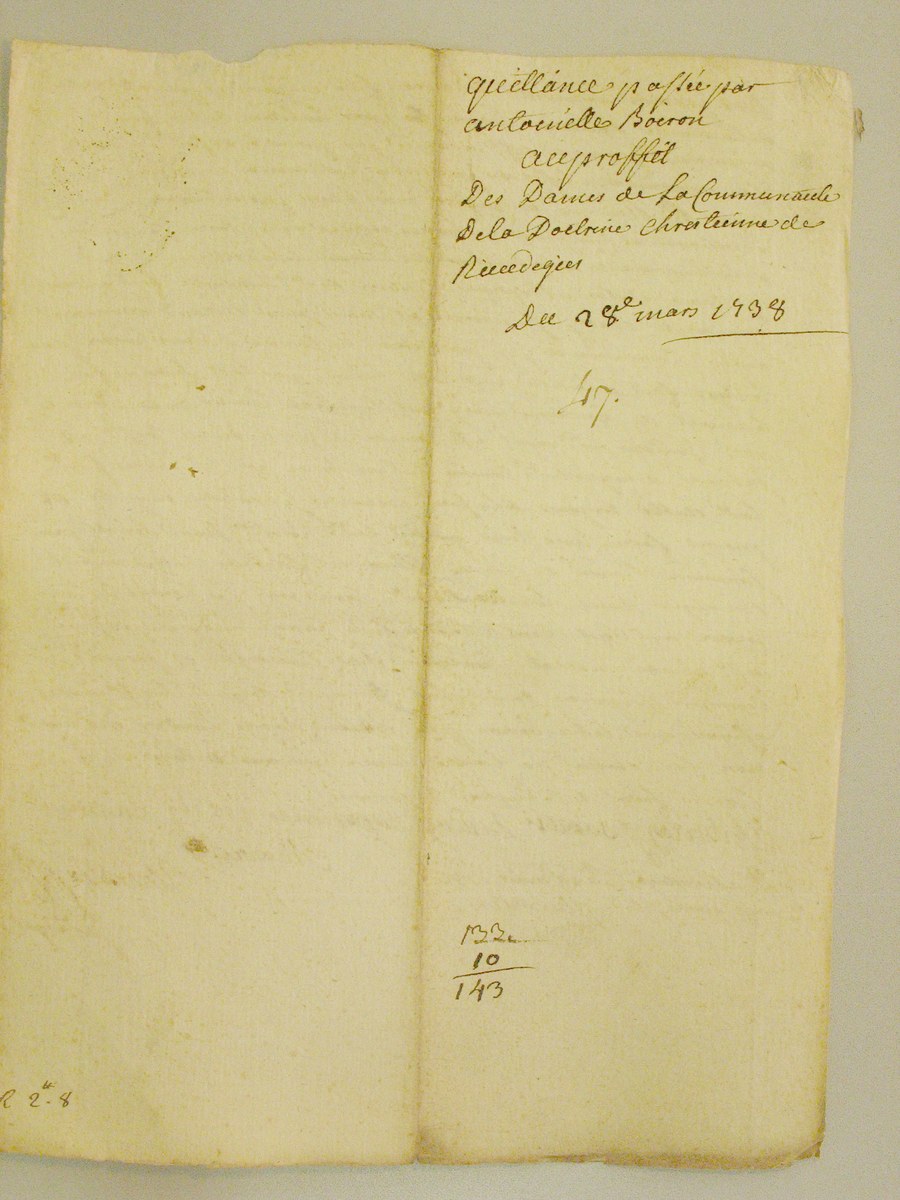 quittance passée par
antoinette Boiron
au proffit
Des Dames de La Communauté
De la Doctrine Chrestienne de
Du 28e mars 1738
47.
133
10
143
R 2# 8